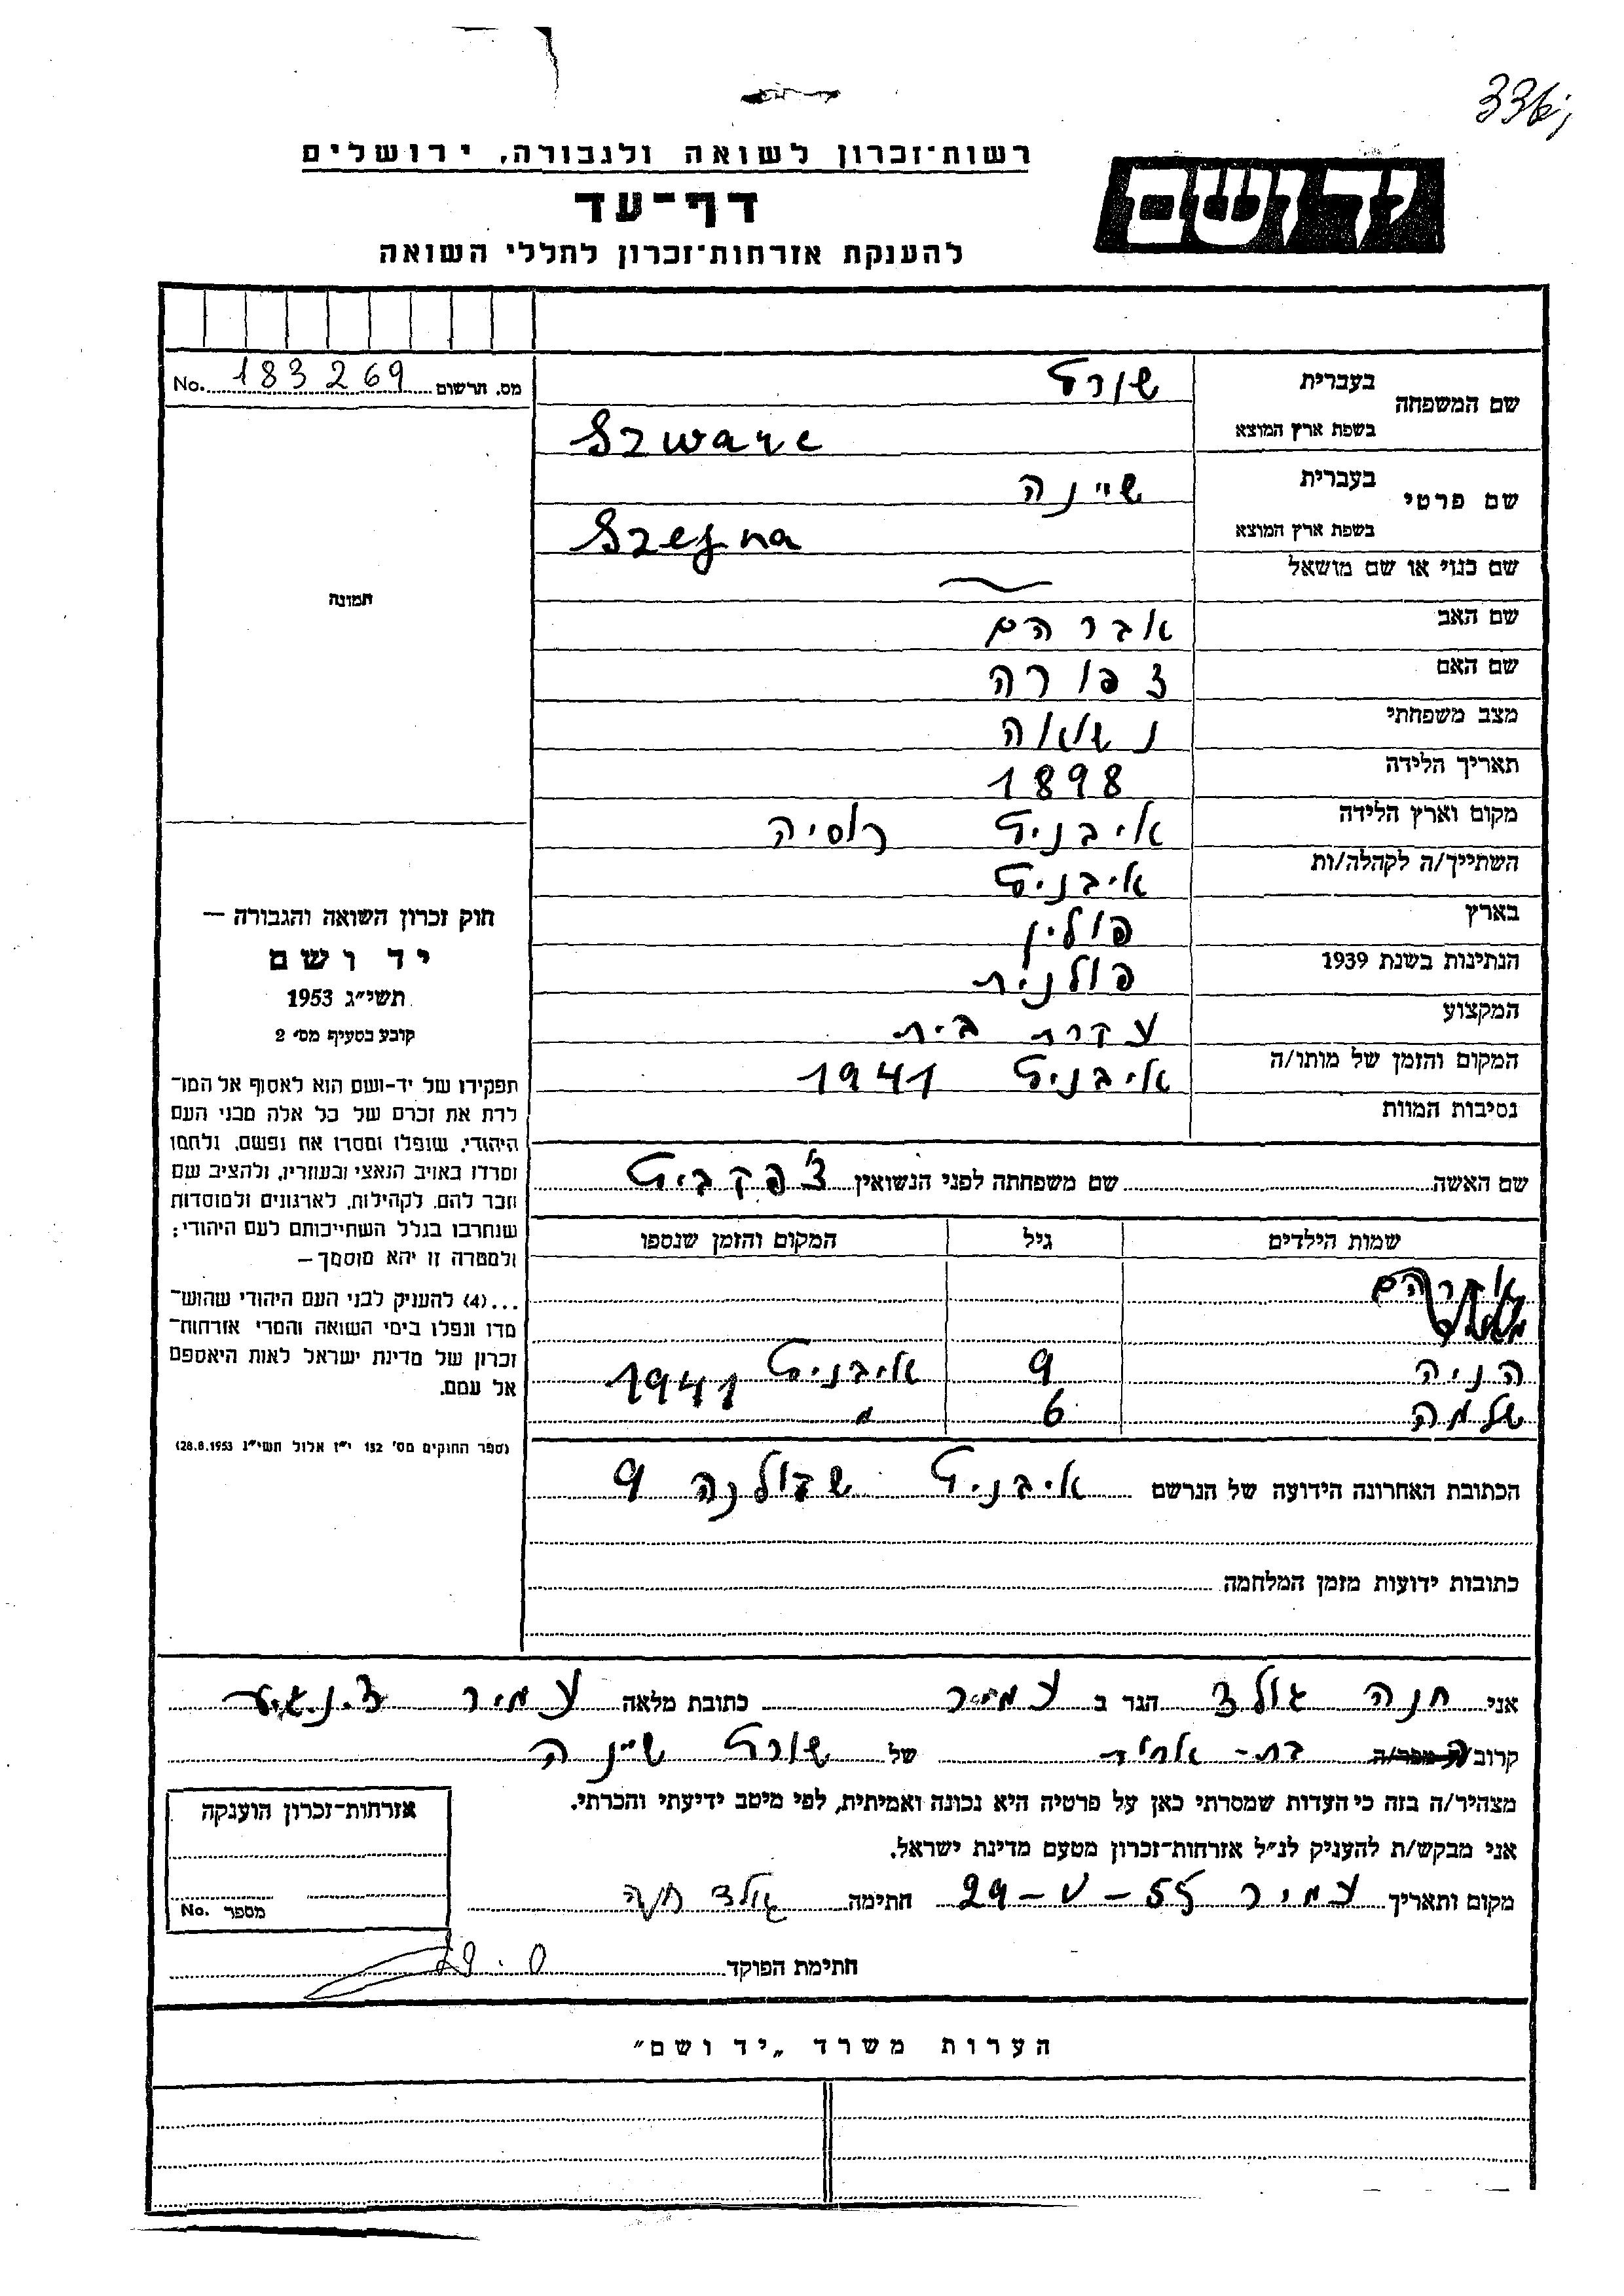 רשות־זכרון לשואה ולגבורה, ירושלים
דף־עד
להענקת אזרחות־זכרון לחללי השואה
יד ושם
מס. תרשום 183269 No.
שם המשפחה
בעברית שורץ
בשפת ארץ המוצא Szwarc
שם פרטי
בעברית שיינה
בשפת ארץ המוצא Szejna
שם כנוי או שם מושאל
שם האב אברהם
שם האם צפורה
מצב משפחתי נשואה
תאריך הלידה 1898
מקום וארץ הלידה איבניץ רוסיה
השתייך/ה לקהלה/ות איבניץ
בארץ פולין
הנתינות בשנת 1939 פולנית
המקצוע עקרת בית
המקום והזמן של מותו/ה איבניץ 1941
נסיבות המוות
תמונה
חוק זכרון השואה והגבורה —
יד ושם
תשי״ג 1953
קובע בסעיף מס׳ 2
תפקידו של יד-ושם הוא לאסוף אל המו־
לדת את זכרם של כל אלה מבני העם
היהודי, שנפלו ומסרו את נפשם, נלחמו
ומרדו באויב הנאצי ובעוזריו, ולהציב שם
וזכר להם, לקהילות, לארגונים ולמוסדות
שנחרבו בגלל השתייכותם לעם היהודי;
ולמטרה זו יהא מוסמך —
...(4) להעניק לבני העם היהודי שהוש־
מדו ונפלו בימי השואה והמרי אזרחות־
זכרון של מדינת ישראל לאות היאספם
אל עמם.
(ספר החוקים מס׳ 132 י״ז אלול תשי״ג 28.8.1953)
שם האשה שם משפחתה לפני הנשואין צ'פקביץ
שמות הילדים גיל המקום והזמן שנספו
הניה 9 איבניץ 1941
שלמה 6 "
הכתובת האחרונה הידועה של הנרשם איבניץ שקולנה 9
כתובות ידועות מזמן המלחמה
אני חנה גולד הגר ב עמיר כתובת מלאה עמיר ד.נ.
קרוב/ה בת-אחיד של שורץ שיינה
מצהיר/ה בזה כי העדות שמסרתי כאן על פרטיה היא נכונה ואמיתית, לפי מיטב ידיעתי והכרתי.
אני מבקש/ת להעניק לנ״ל אזרחות־זכרון מטעם מדינת ישראל.
מקום ותאריך עמיר 29-V-55 חתימה גולד חנה
חתימת הפוקד
אזרחות-זכרון הוענקה
מספר No.
הערות משרד „יד ושם״